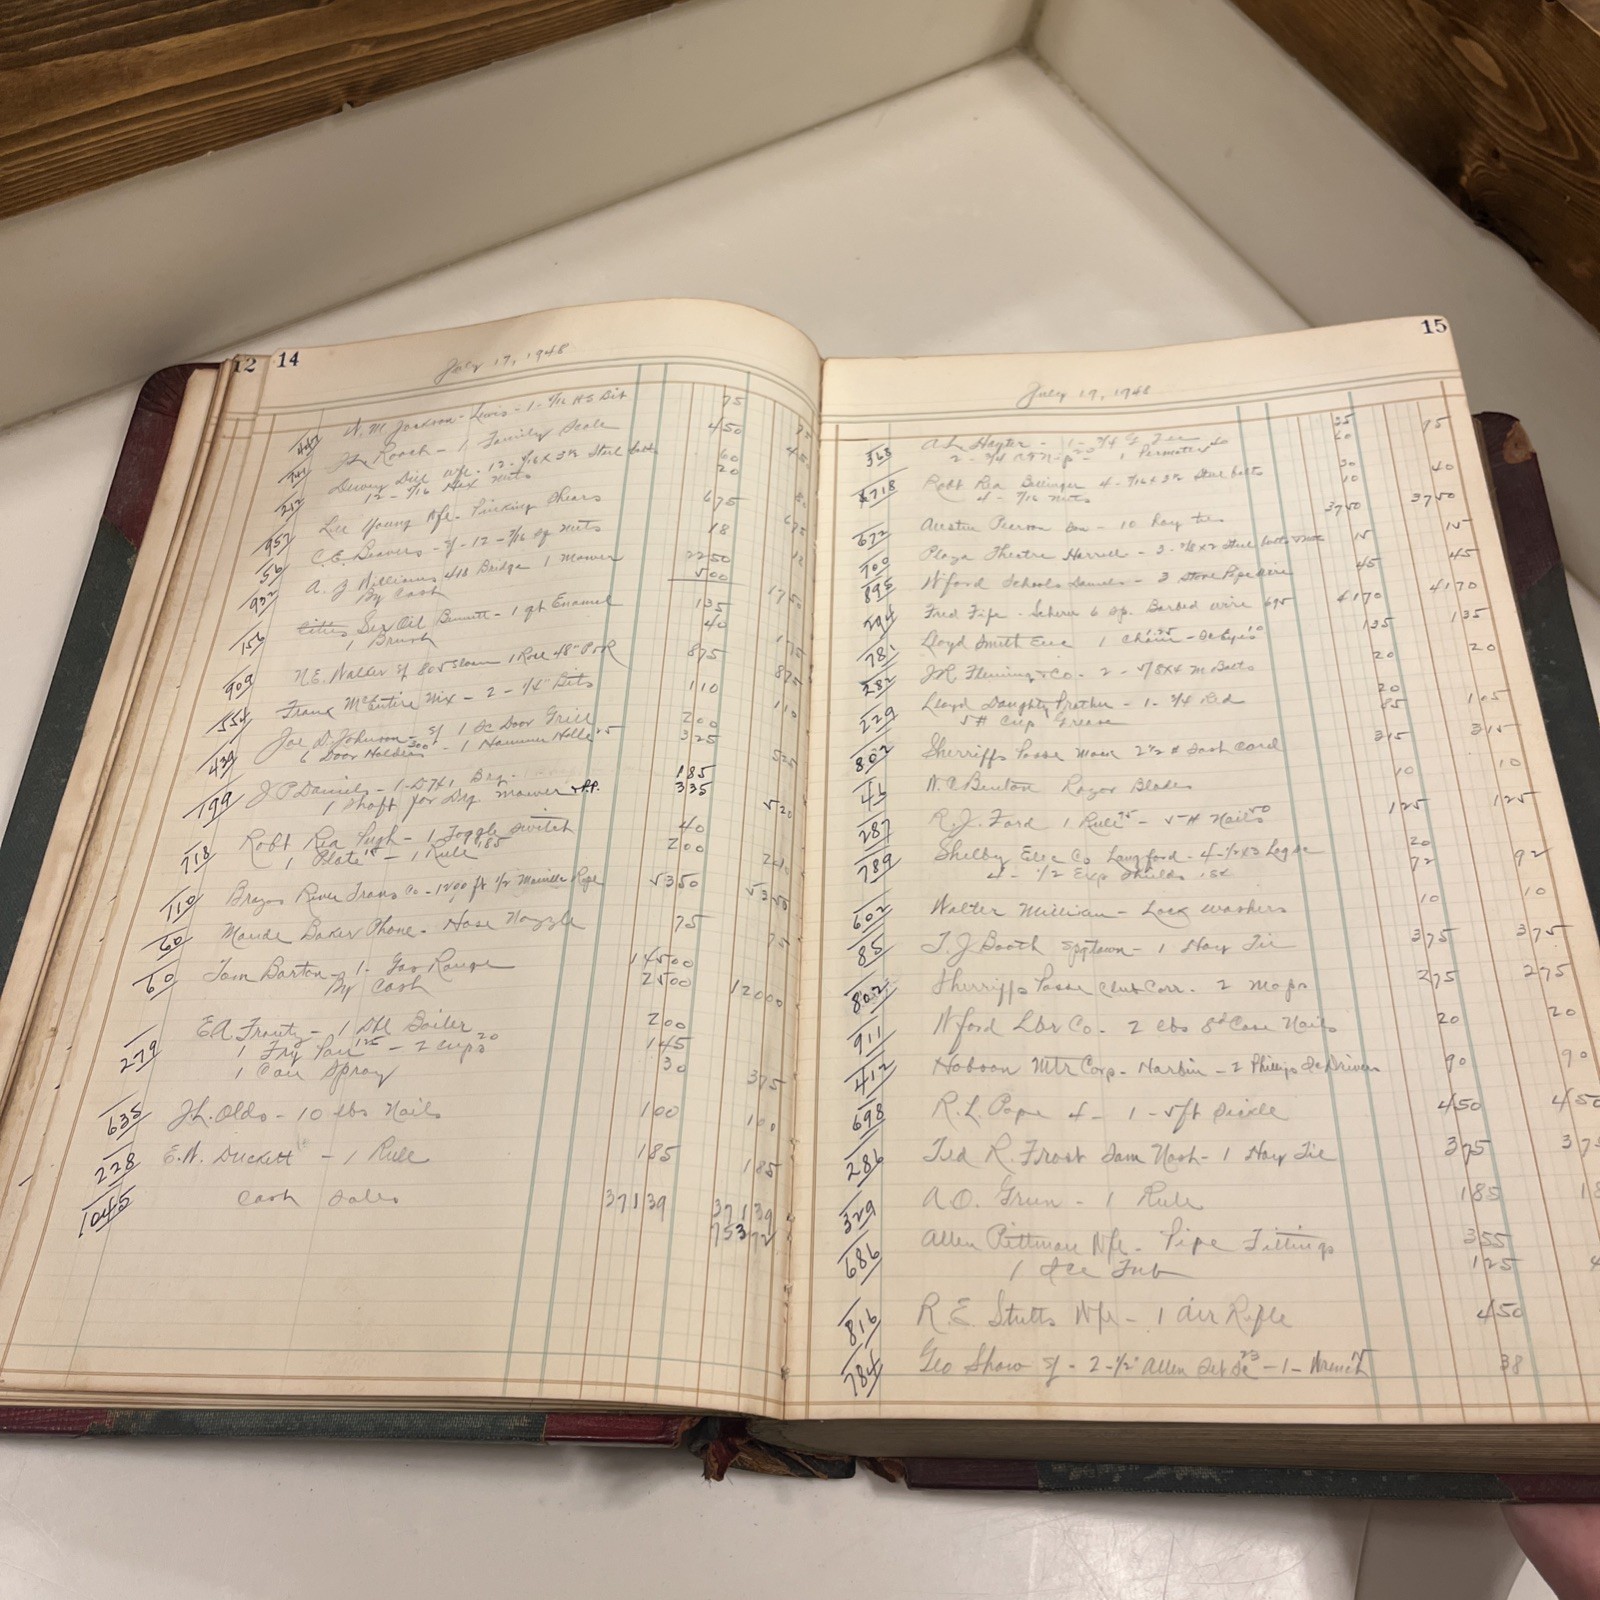 12 14
July 17, 1948
W. M. Jackson - Lewis - 1 - 9/16 HS Bit 75
Roach - 1 Family Scale 450
Dewey Nfl. 12 - 7/16 x 3½ Steel bolts 60
12 - 7/16 Hex nuts 20
957 Lee Young Nfl. Pinking Shears 675 675
56 C.E. Beavers - 12 - 7/16 sq nuts 18
932 A. J. Williams 418 Bridge 1 mower 2250
By Cash 500 1750
156 Ser Oil Bennett - 1 qt Enamel 135
1 Brush 40 175
909 N.E. Walker 805 Sloan 1 Roll 48" 875 875
554 Frank McEntire Mix - 2 - 1/4 Bits 110 110
439 Joe D. Johnson - 1 Sc Door Grill 200
6 Door Holders 200 - 1 Hammer 325 525
199 J P Daniels - 1 - Brg. 185
1 Shaft for mower 335 520
718 Robt Rea Pugh - 1 Toggle Switch 40
1 Plate 15 - 1 Rule 185 200 240
110 Brazos River Trans Co - 1200 ft 1/2 Manilla Rope 5350 5350
60 Maude Baker Phone - Hose Nozzle 75 75
60 Tom Barton - 1 - Gas Range 14500
By Cash 2500 12000
279 E.A. Frantz - 1 Dbl Boiler 200
1 Fry Pan 125 - 2 cups 20 145
1 Can Spray 30 375
635 J.L. Olds - 10 lbs Nails 100 100
228 E.W. Duckett - 1 Rule 185 185
1045 Cash Sales 37139 37139
75372
15
July 19, 1948
363 A L Hayter - 1 - 3/4 G Tee 35 75
1 40
718 Robt Rea Bollinger 4 - 7/16 x 3½ Steel bolts 30 40
4 - 7/16 nuts 10
672 Austin Pearson - 10 hay ties 3750 3750
700 Plaza Theatre Harrell - 3 - 3/8 x 2 Steel bolts & nuts 15 15
895 Wford Schools Daniels - 3 Stove Pipe Wire 45 45
294 Fred Fife - 6 sp. Barbed wire 695 4170 4170
781 Lloyd Smith Elec 1 Chain 125 10 135 135
282 J.R. Fleming & Co. - 2 - 5/8x4 M Bolts 20 20
229 Lloyd Daughtry Prather - 1 - 3/4 20
5# Cup Grease 85 105
802 Sherriffs Posse Mose 2½ # Sash Cord 315 315
W. C. Benton Razor Blades 10 10
287 R. J. Ford 1 Rule 75 - 5# Nails 50 125 125
789 Shelby Elec Co Langford - 4 - 1/2x3 Lag Sc 20
4 - 1/2 Exp Shields 18¢ 72 92
602 Walter Millican - Lock washers 10 10
85 T. J. Booth Sptown - 1 Hay Tie 375 375
802 Sherriffs Posse Club Carr. 2 Mops 275 275
911 Wford Lbr Co. 2 lbs 8d Case Nails 20 20
412 Hobson Mtr Corp. Harbin - 2 Phillips Sc Drivers 90 90
698 R. L. Pope 4 - 1 - 5 ft Sickle 450 450
286 Ted R. Frost Sam Nash - 1 Hay Tie 375 375
329 A. O. Green - 1 Rule 185 18
686 Allen Pittman Nfl. Pipe Fittings 355
1 Ice Tub 125 4
816 R. E. Stutts Nfl - 1 Air Rifle 450
784 Geo Shaw - 2 - 1/2" Allen Set Sc 23 - 1 - Wrench 15 38